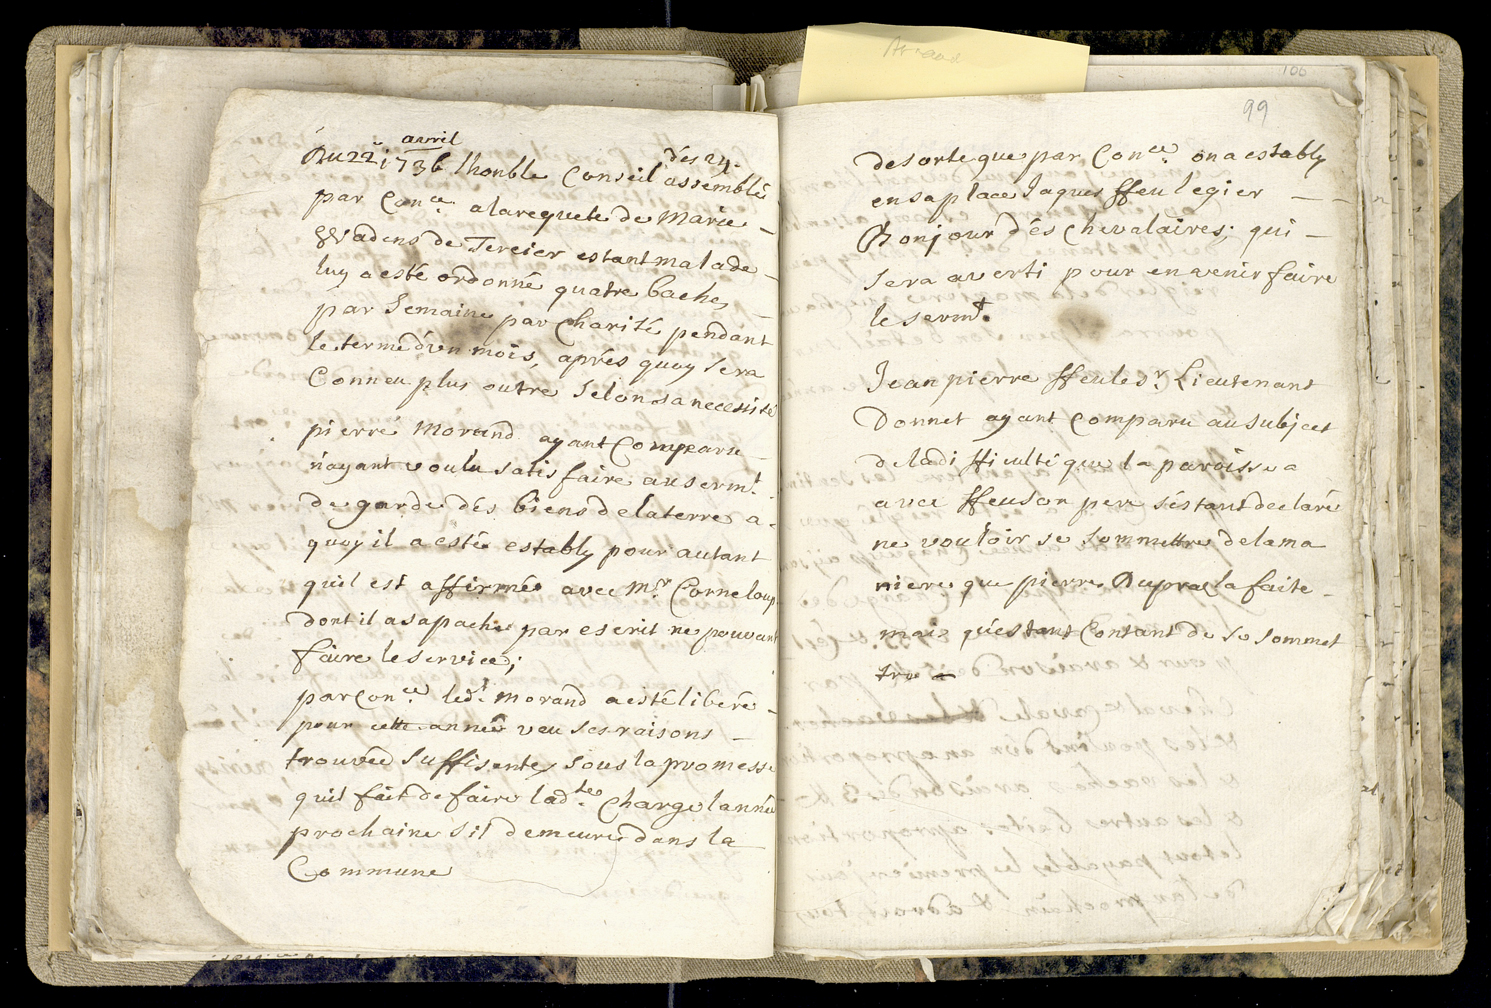 avril
Du 22e 1736 lhonble Conseil assemblé
des 24.
par Conce. alarequete de Marie
Wadens de Tercier estant malade
luy a esté ordonné quatre baches
par Semaine par Charité pendant
le terme dvn mois, aprés quoy sera
Conneu plus outre Selon sa necessité
pierre Morand ayant Comparu
n'ayant voulu satisfaire au sermt.
de garde dés biens de la terre a
quoy il a estée establÿ pour autant
quil est affirmée avec Mr. Corneloup
dont il a sa pache par escrit ne pouvant
faire le service;
par Conce. ledt. Morand a esté liberé
pour cette année veu ses raisons
trouvée Suffisentes sous la promesse
quil fait de faire ladte. Charge lannée
prochaine s'il demeure dans la
Commune
106
99
de sorte que par Conce. on a establÿ
en sa place Jaques ffeu legier
Bonjour dés Chevalaires; qui
sera averti pour en venir faire
le sermt.
Jean pierre ffeu le Sr. Lieutenant
Donnet ayant Comparu au subject
de la difficulté que la paroisse a
avec ffeu son pere s'éstant declaré
ne vouloir se sommettre de la ma
niere que pierre Dupraz la faite
mais qu'éstant Contant de se sommet
tre a